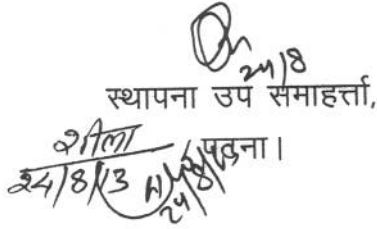 24/8
स्थापना उप समाहर्त्ता,
शीला पटना।
24/8/13 24/8